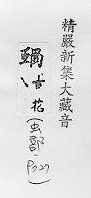 精嚴新集大藏音
古花(虫部.P.27)